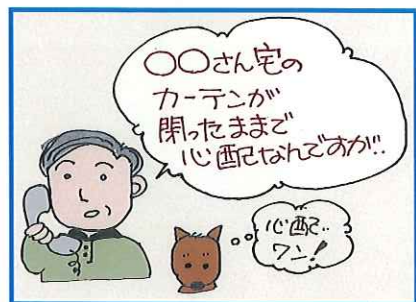 〇〇さん宅の
カーテンが
閉ったままで
心配なんですが‥
心配‥
ワン！